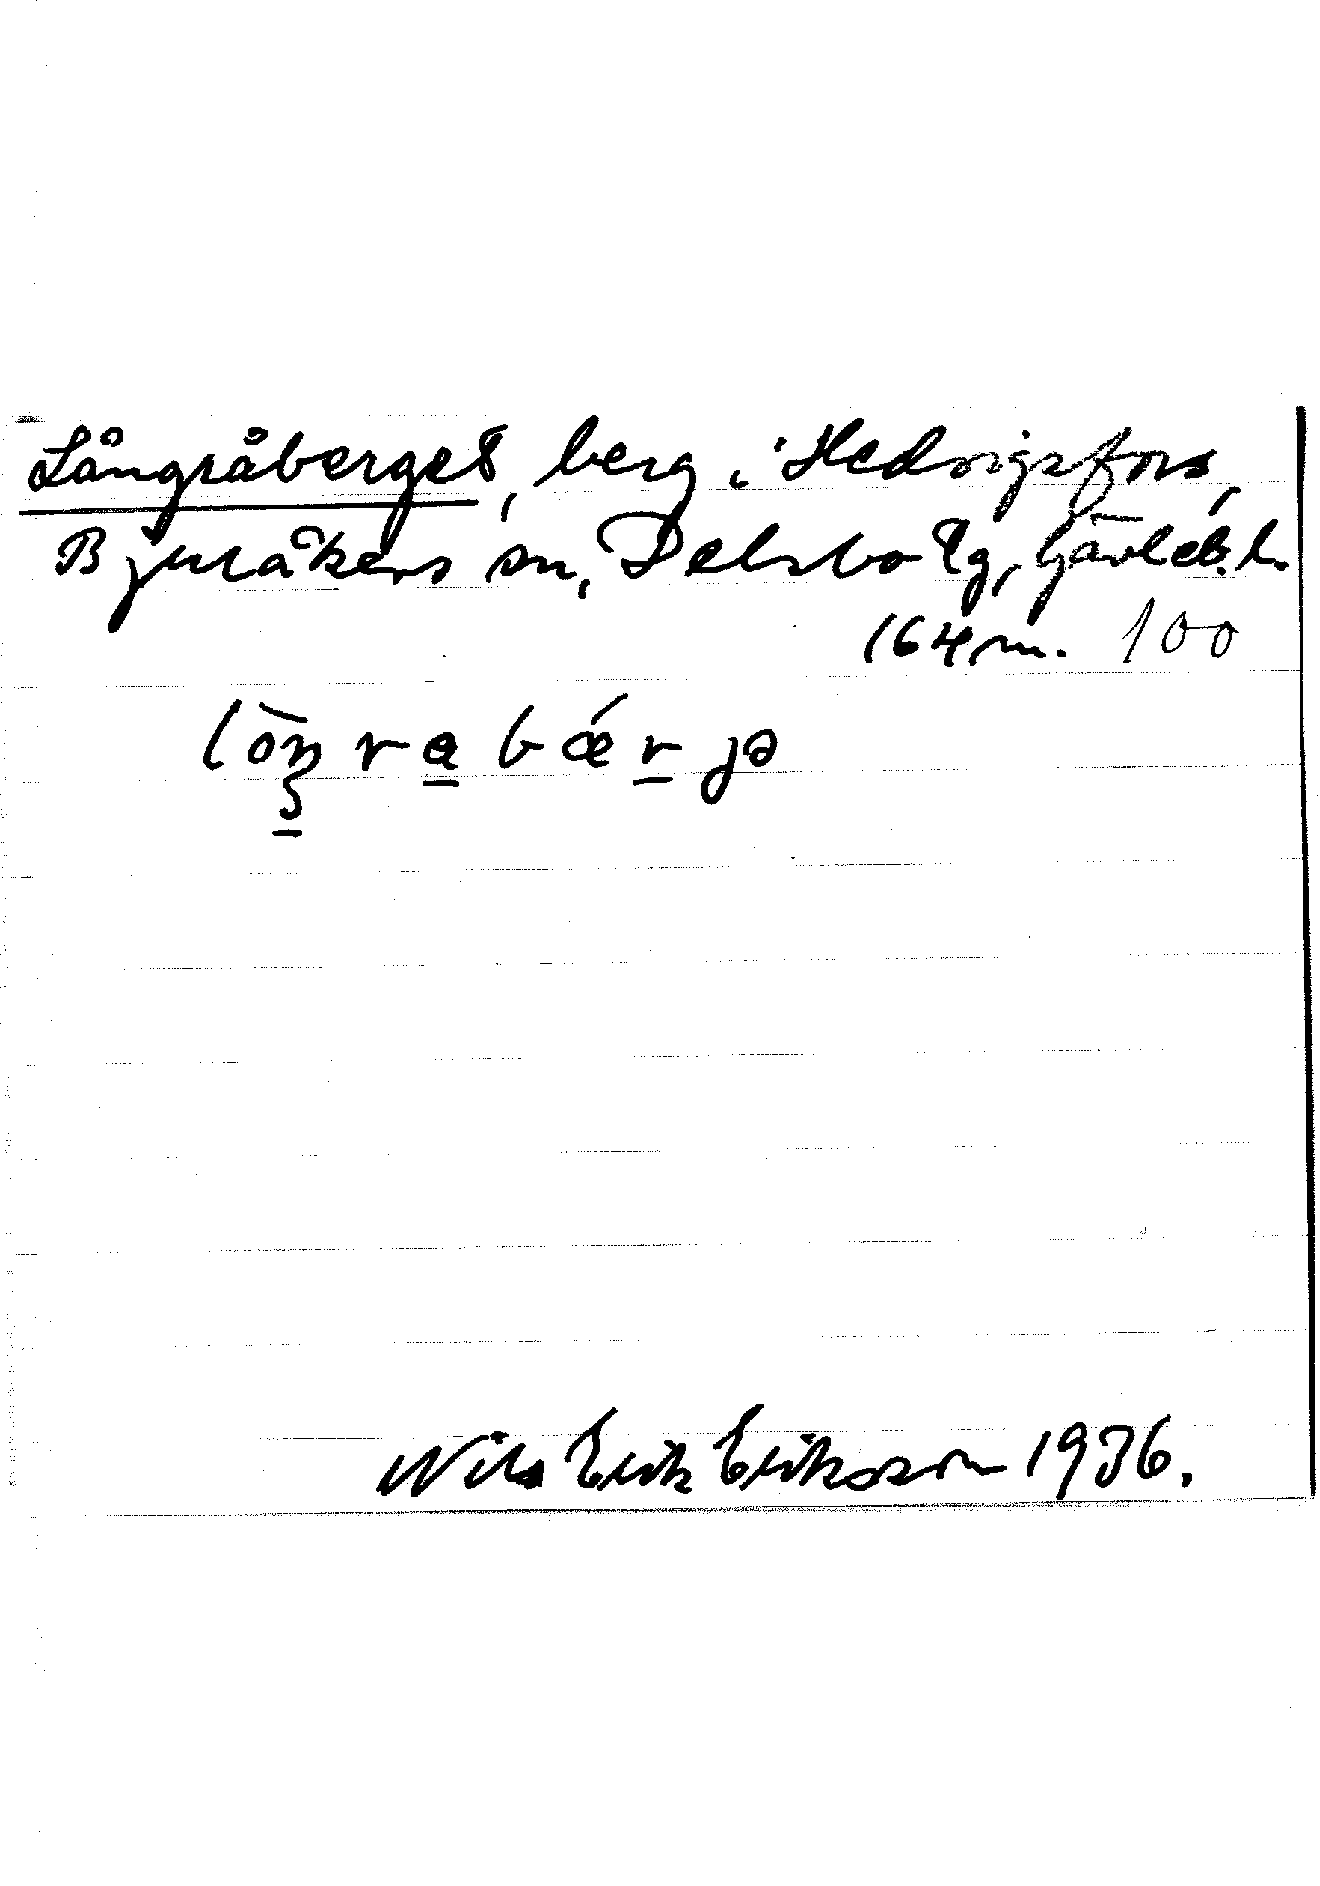 Långråberget, berg i Hedvigsfors,
Bjuråkers sn, Delsbo tg, Gävleb. l.
164 m. 100
lòŋrabǽrjə
Nils Erik Eriksson 1936.